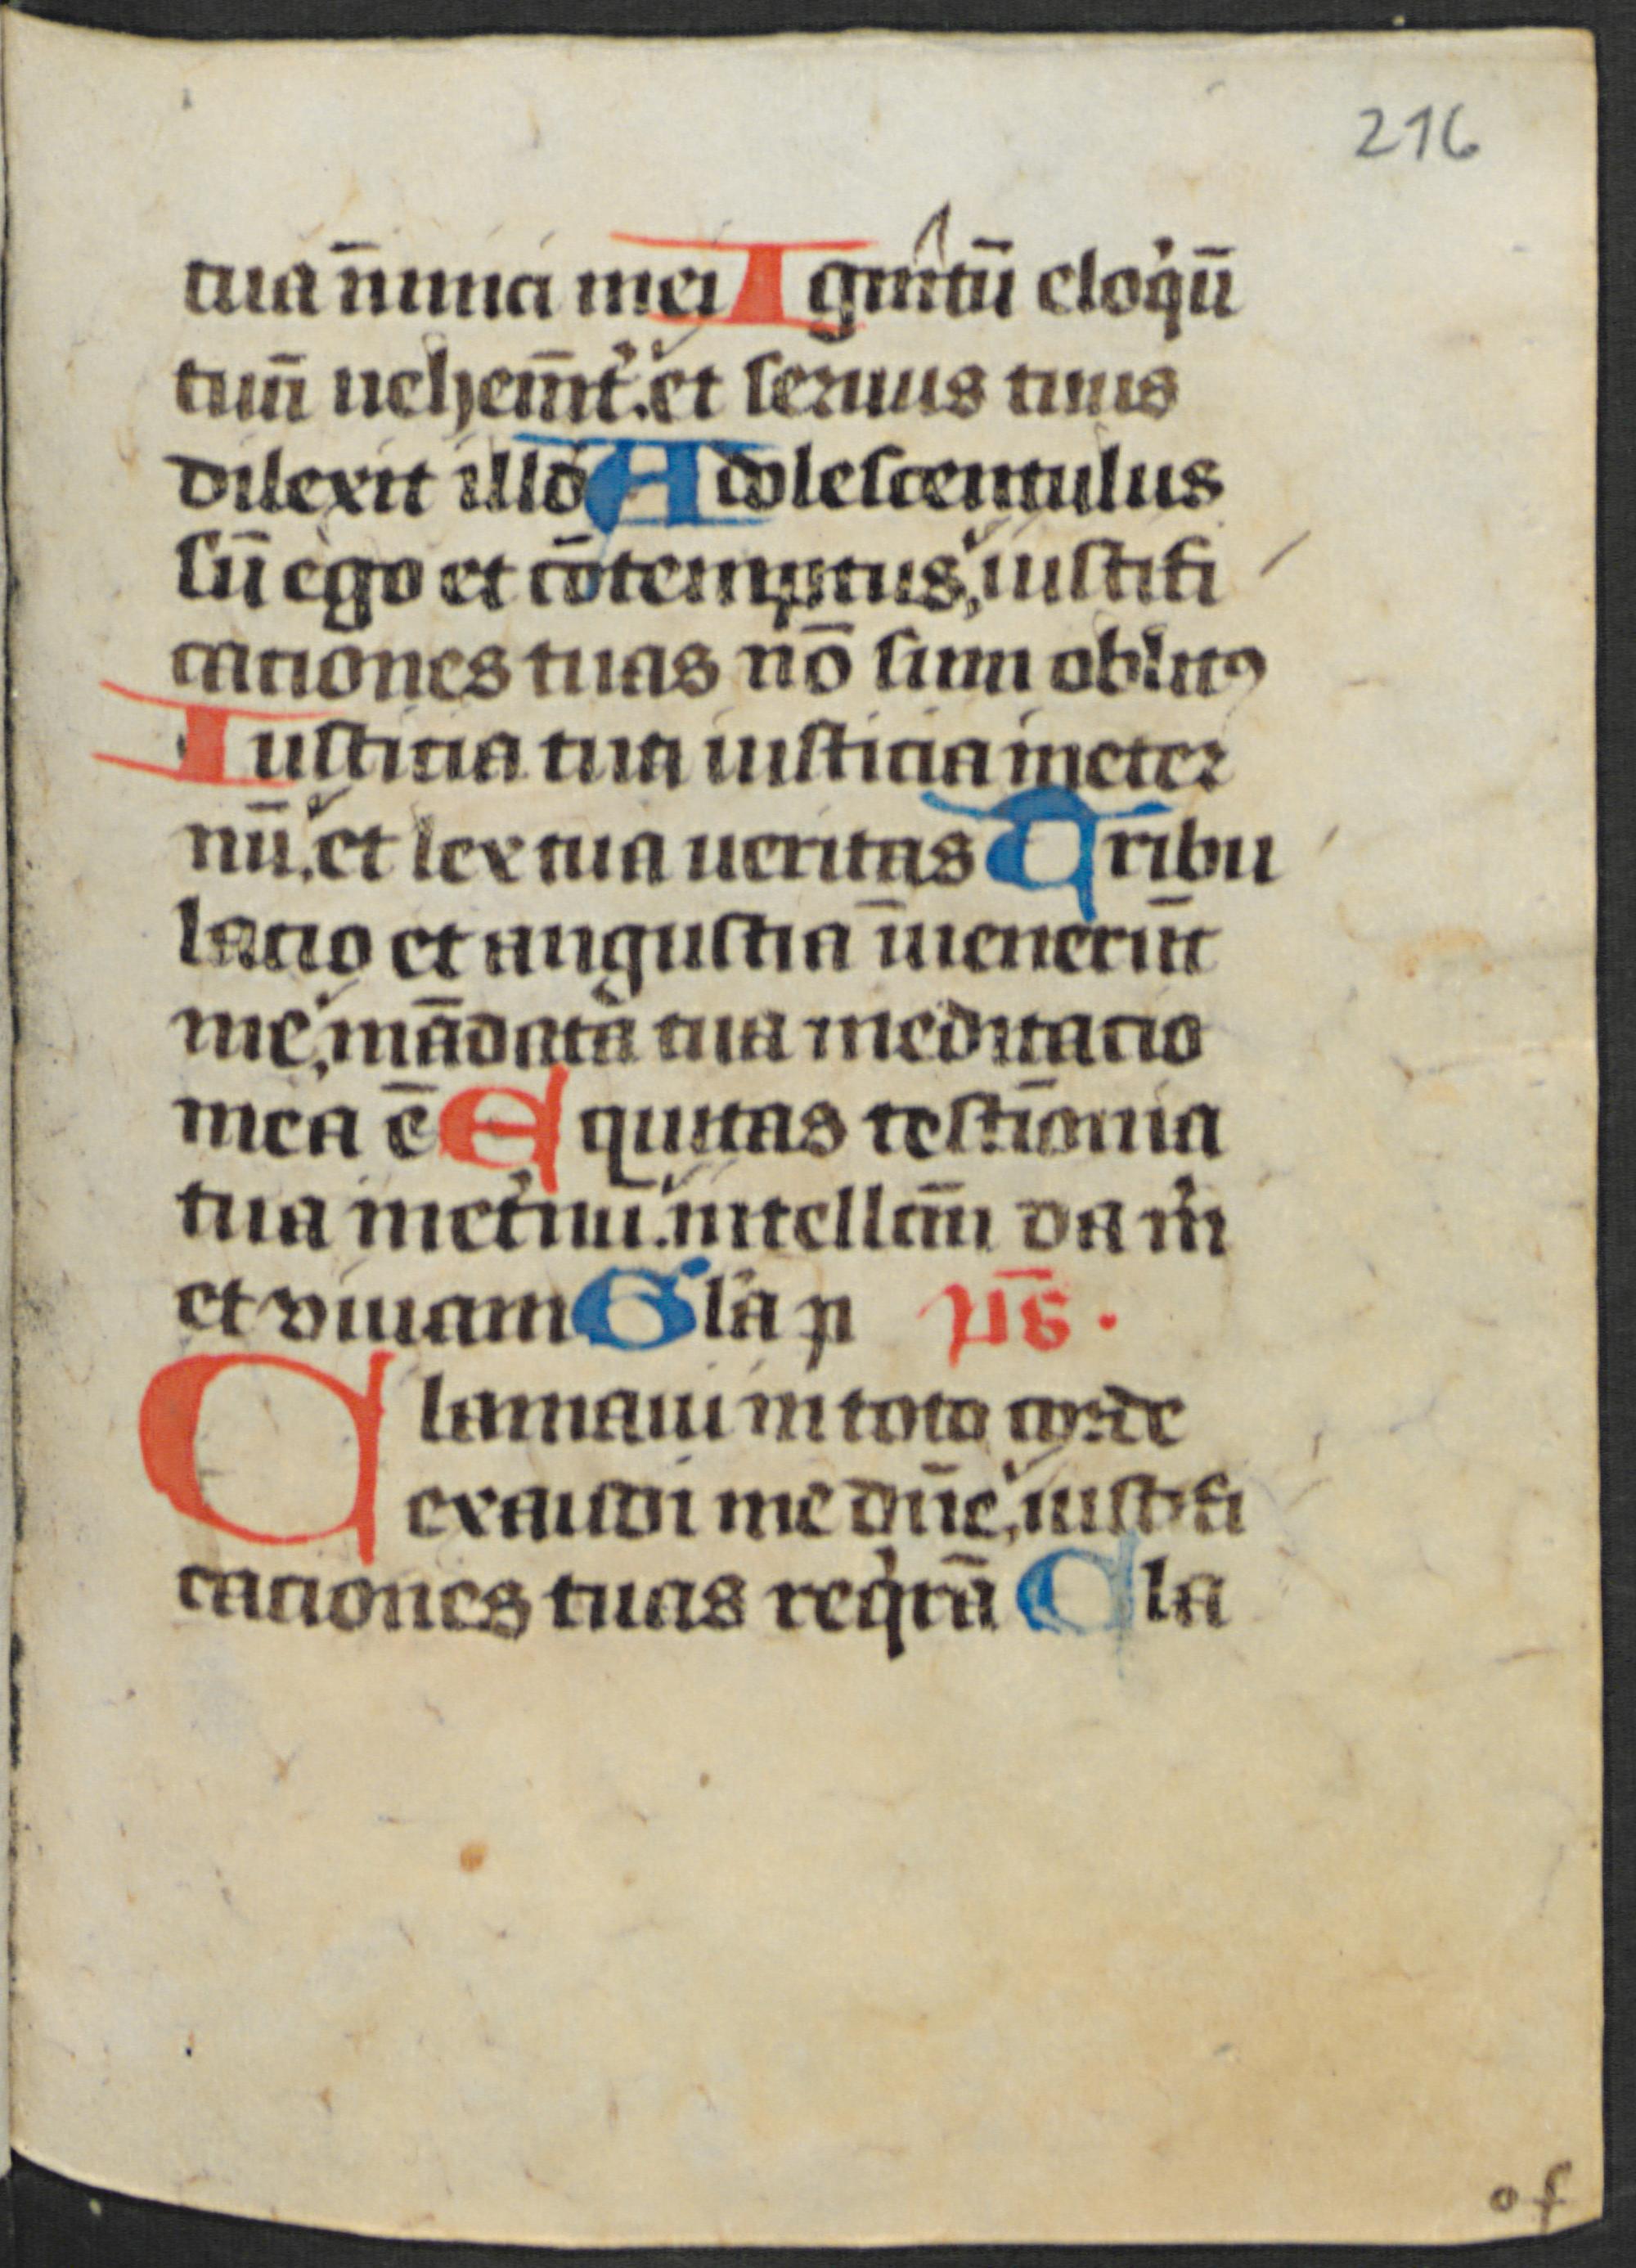 216
tua inimici mei Ignitū eloqⁱū
tuū uehem̄t᷑. et seruus tuus
dilexit illd̄ Adolescentulus
sū ego et cōtemptus, iustifi
caciones tuas nō sum oblitꝯ
Iusticia tua iusticia ineter
nū. et lex tua ueritas Tribu
lacio et angustia īuenerūt
me, mādata tua meditacio
mea ē Equitas testīonia
tua inet᷑nū. intellcm̄ da mⁱ
et viuam Gl'a p ps̄.
Clamaui in toto corde
exaudi me dn̄e, iustifi
caciones tuas reqⁱrā Cla
of